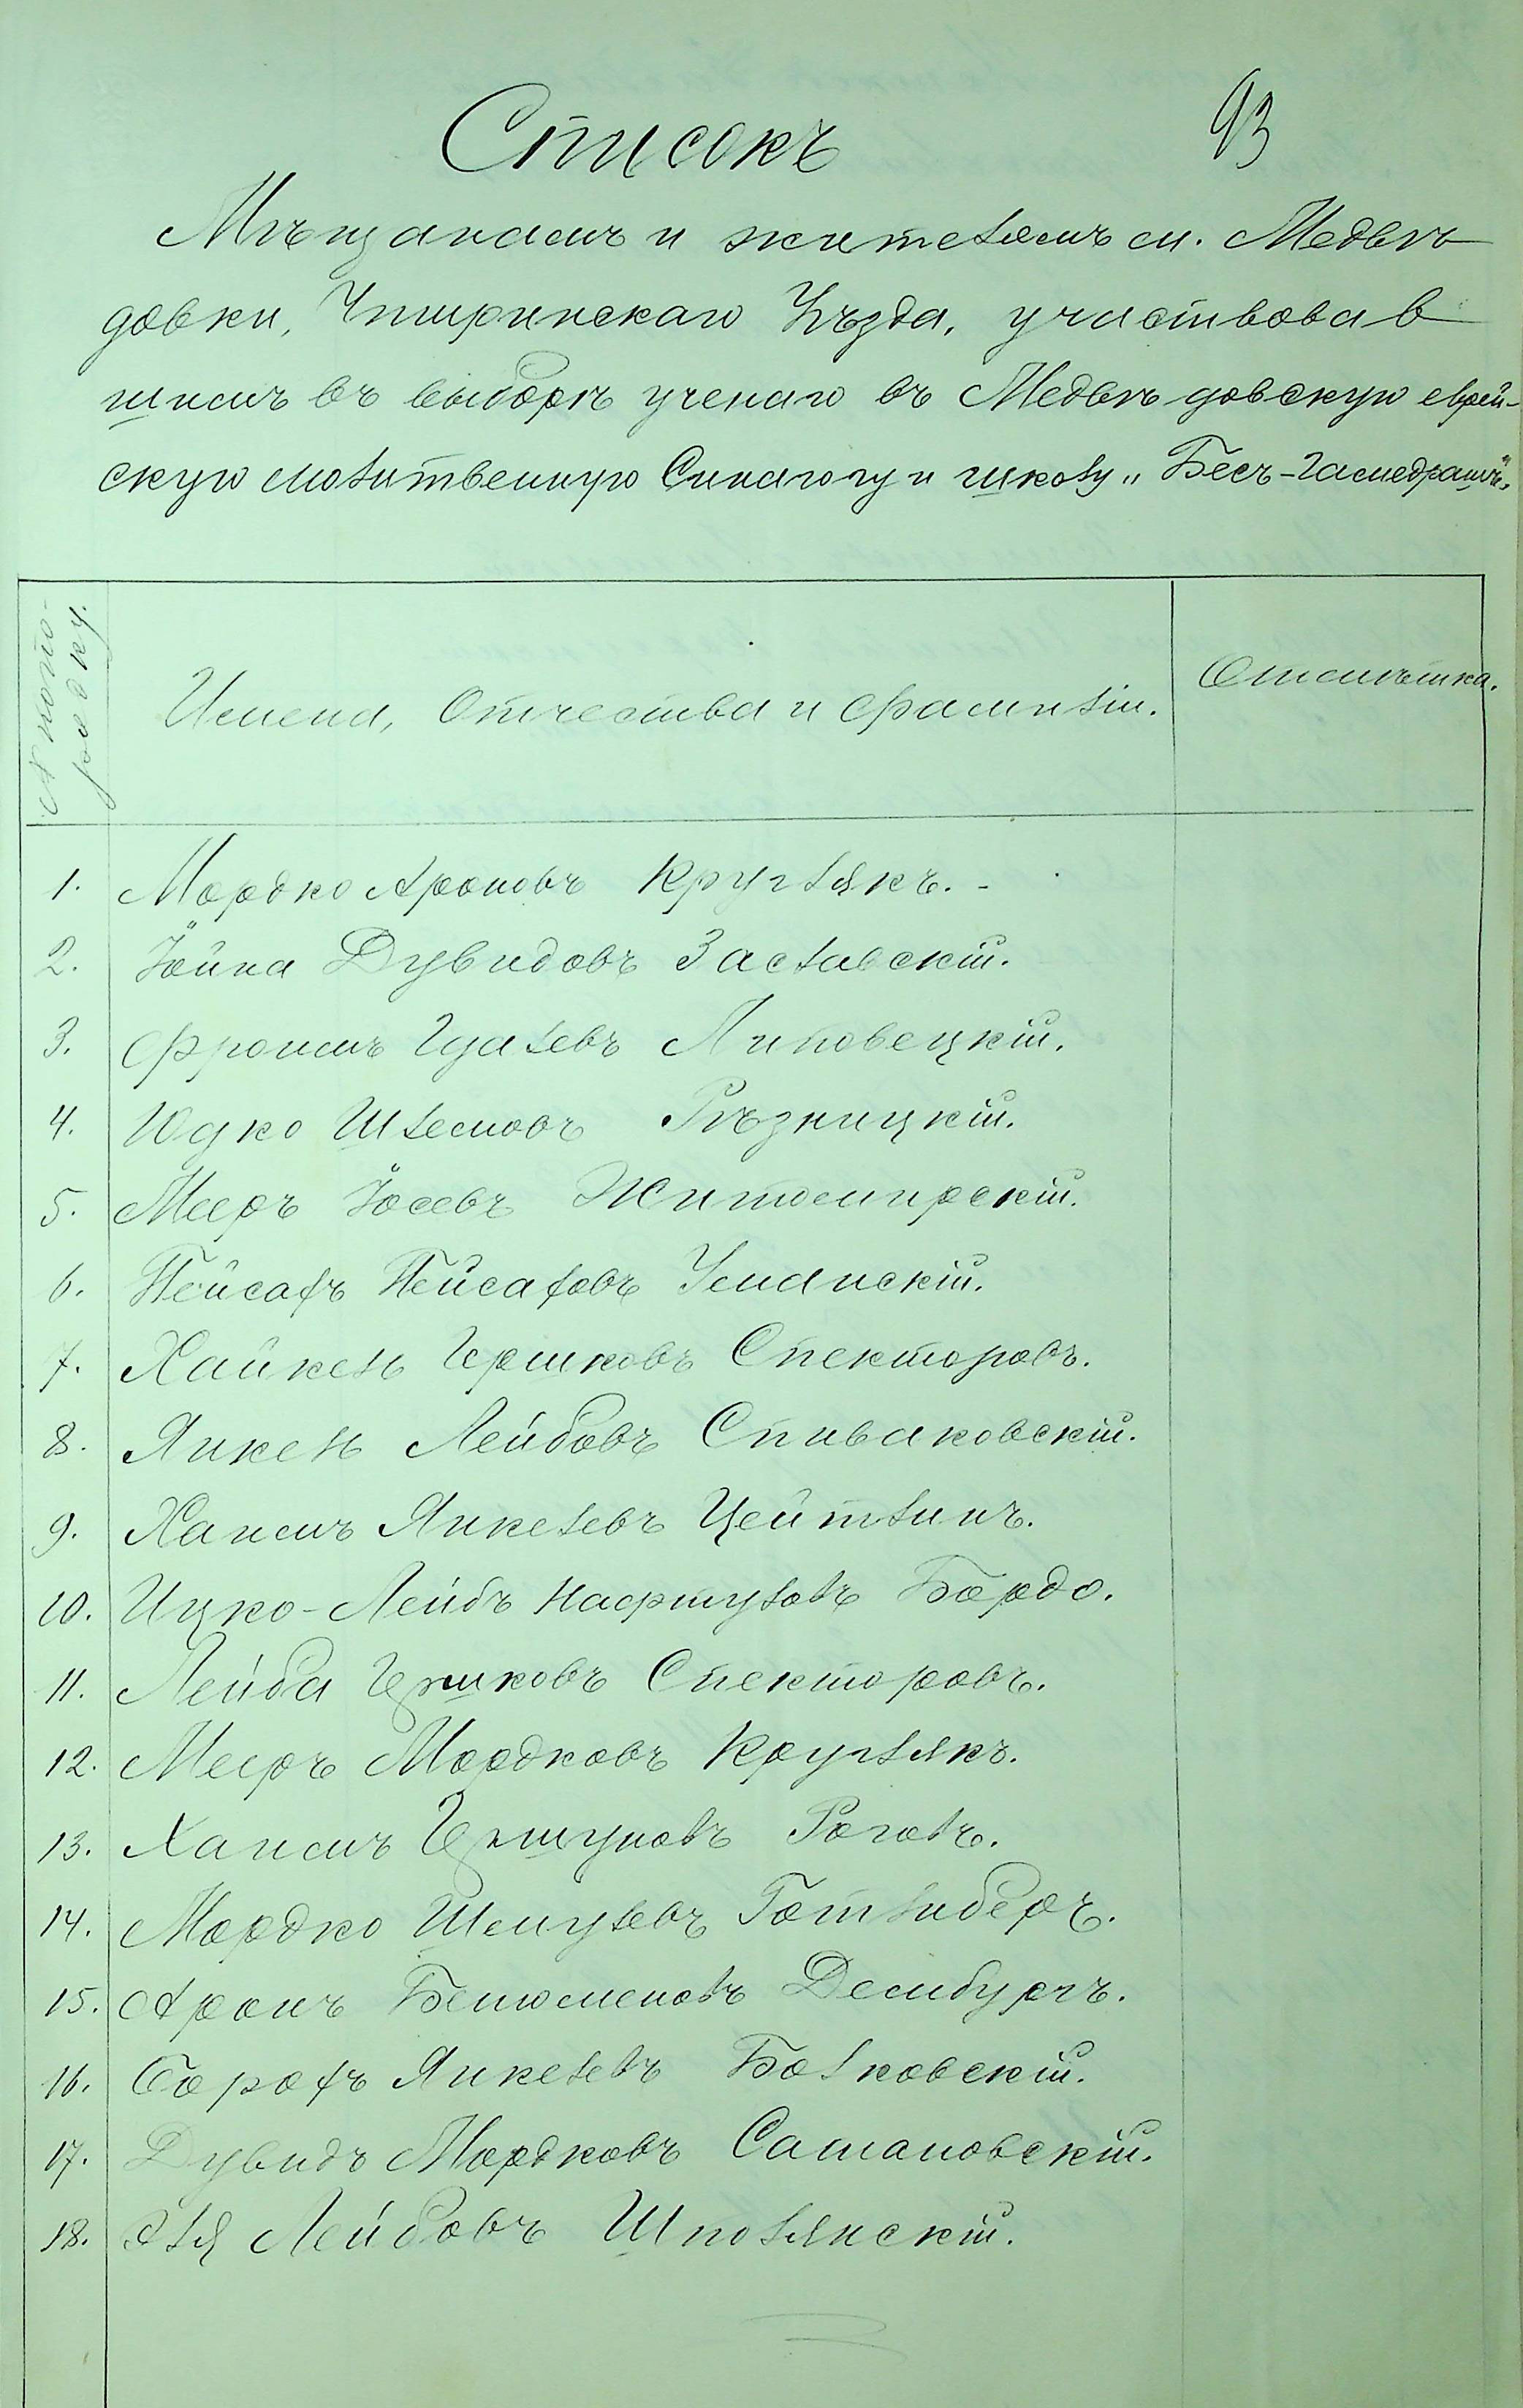 93
Списокъ
Мѣщанамъ и жителямъ м. Медвѣ
довки, Чигиринскаго Уѣзда, участвовав
шимъ въ выборѣ ученаго въ Медвѣдовскую еврей-
скую молитвенную Синагогу и школу „Бесъ-Гамедрашъ".
№ по по-
рядку.
Имена, Отчества и Фамиліи.
Отмѣтка.
1. Мордко Ароновъ Круглякъ.
2. Іойна Дувидовъ Заславскій.
3. Фроимъ Гдалевъ Липовецкій.
4. Юдко Шлемовъ Рѣзницкій.
5. Мееръ Іосевъ Житомирскій.
6. Пейсахъ Пейсаховъ Уманскій.
7. Хайкель Гершковъ Спекторовъ.
8. Янкель Лейбовъ Спиваковскій.
9. Хаимъ Янкелевъ Цейтлинъ.
10. Ицко-Лейбъ Нафтуловъ Бордо.
11. Лейба Гершковъ Спекторовъ.
12. Мееръ Мордковъ Круглякъ.
13. Хаимъ Гершуновъ Роговъ.
14. Мордко Шмулевъ Готлиберъ.
15. Аронъ Беньюменовъ Дембургъ.
16. Борохъ Янкелевъ Волковскій.
17. Дувидъ Мордковъ Сатановскій.
18. Эля Лейбовъ Шполянскій.